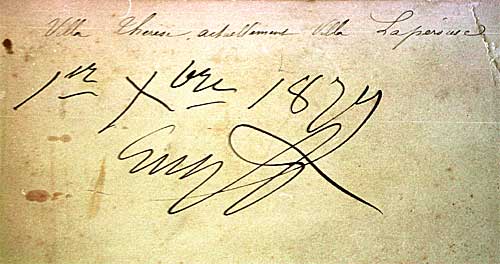 Villa Thérèse, actuellement Villa Lapérouse
1er Xbre 1877